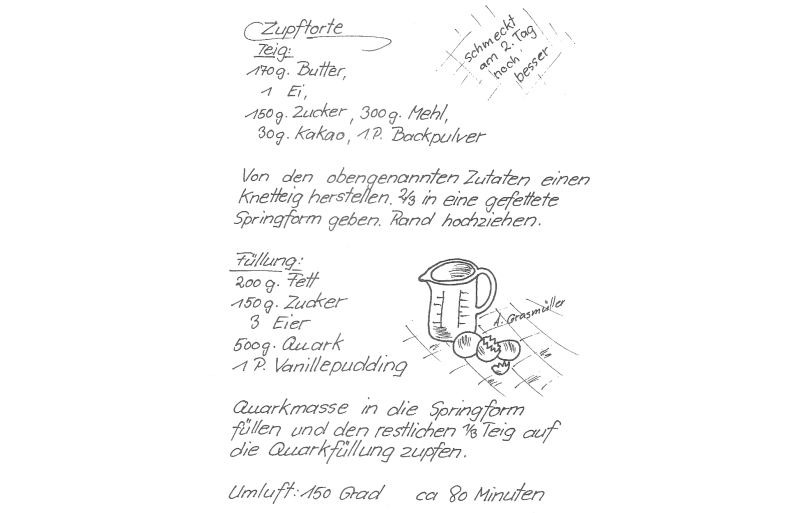 Zupftorte
schmeckt
am 2. Tag
noch
besser
Teig:
170g. Butter,
1 Ei,
150g. Zucker, 300g. Mehl,
30g. Kakao, 1 P. Backpulver
Von den obengenannten Zutaten einen
Knetteig herstellen. 2/3 in eine gefettete
Springform geben. Rand hochziehen.
Füllung:
200g. Fett
150g. Zucker
3 Eier
500g. Quark
1 P. Vanillepudding
A. Grasmüller
Quarkmasse in die Springform
füllen und den restlichen 1/3 Teig auf
die Quarkfüllung zupfen.
Umluft: 150 Grad ca 80 Minuten